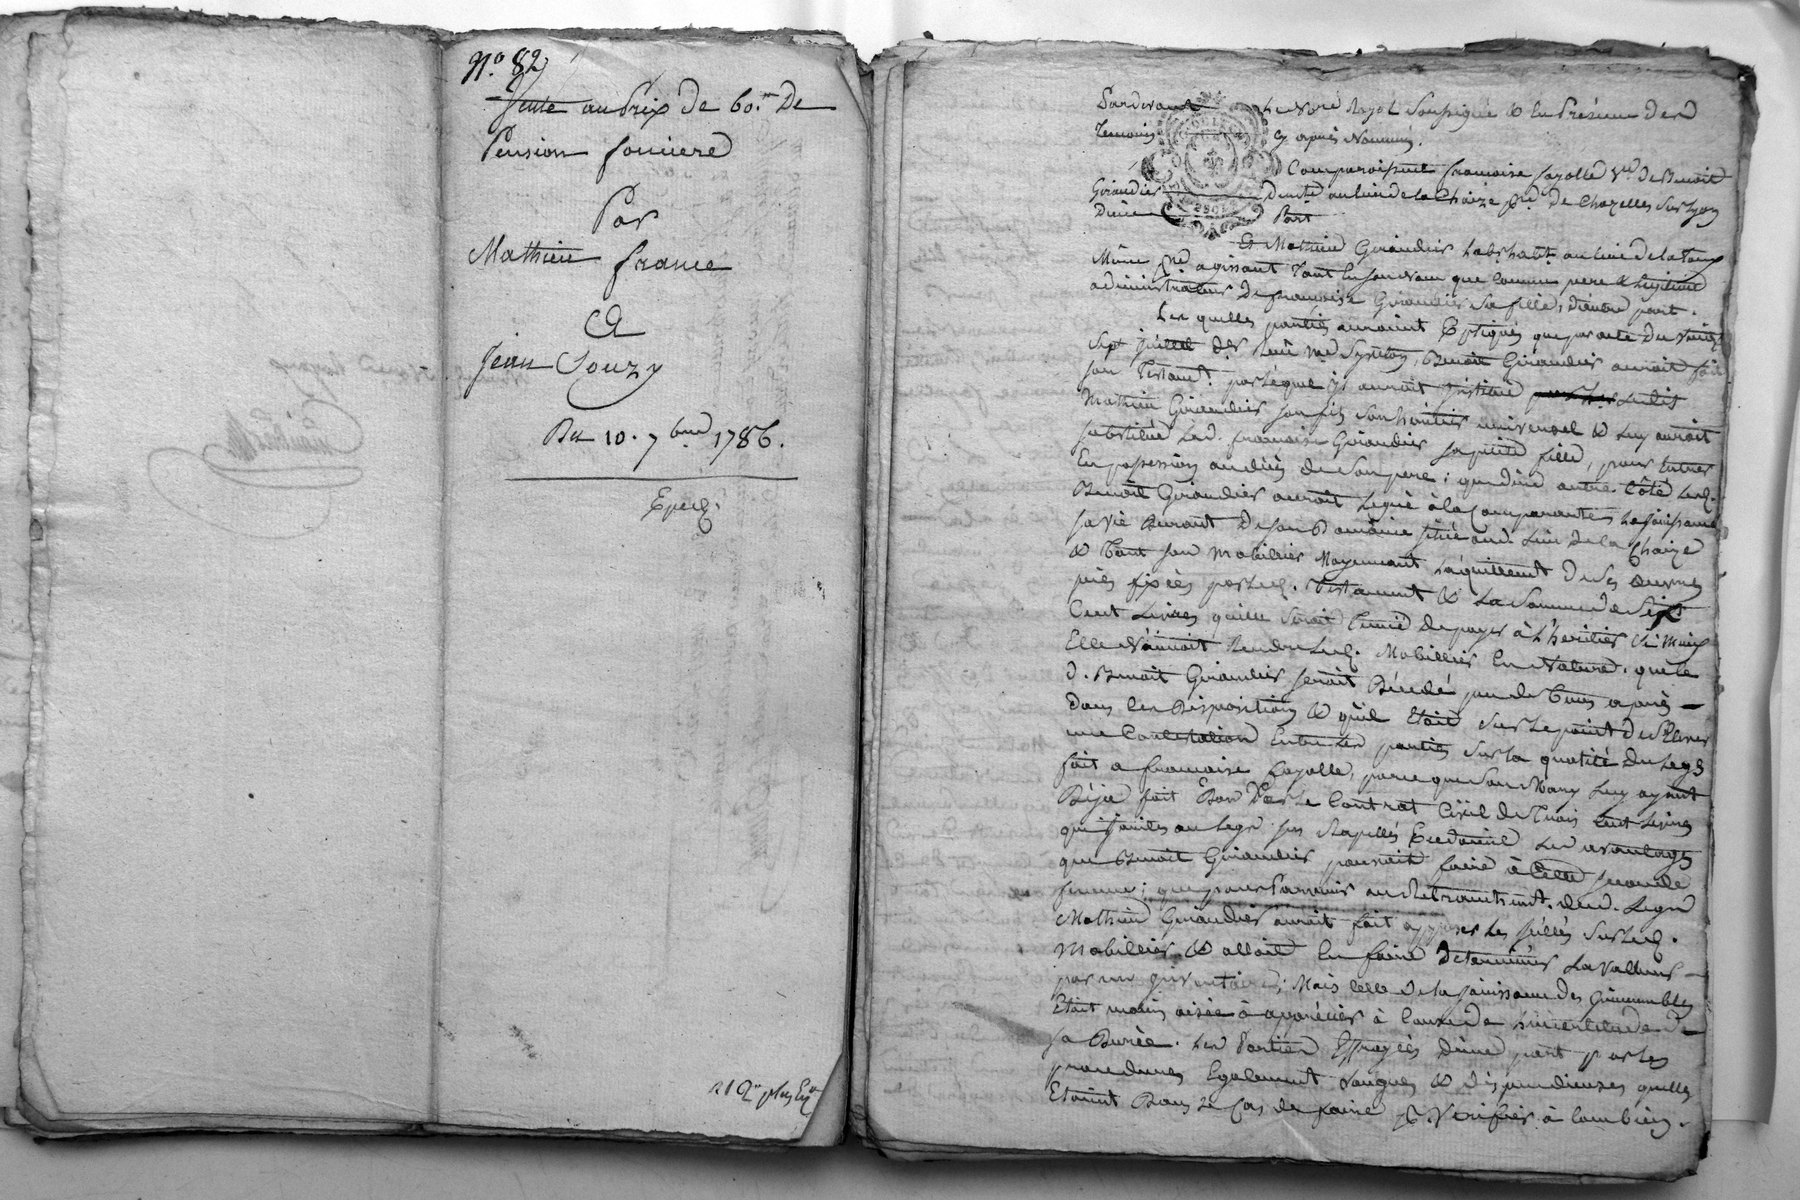 N.º 82
Vente au Prix de 60.ᵗᵗ De
Pension fonciere
Par
Mathieu france
A
Jean Souzy
Du 10. 7bre 1786.
Exped.
Pardevant Le No.re Royal Soussigné & En Présence Des
Temoins cy après Nommés.
Comparoissent francoise fayolle V.ve De Benoit
Giraudier au lieu de la Chaize p.sse De Chazelles sur Lyon
D'une Part
Et Mathieu Giraudier habitant au lieu de la
Même p.sse agissant Tant En son nom que comme pere & Legitime
administrateur De francoise Giraudier Sa fille, D'autre part.
Les quelles parties auroient Expliqué que par acte Du vingt
Sept Juillet Benoit Giraudier auroit fait
son Testam.t par Lequel il auroit Institué Ledit
Mathieu Giraudier son fils Son heritier universel & Luy auroit
substitué Lad. francoise Giraudier sa petite fille, pour Entrer
En possession au décès de Son pere; que d'une autre Côté Led.
Benoit Giraudier auroit Legué à la Comparante La joüissance
sa vie Durant De son Domaine situé aud. Lieu De la Chaize
& Tout son Mobilier Moyennant L'aquittement De Ses œuvres
pies fixées par Led. Testament & La Somme de Sept
Cent Livres qu'elle seroit Tenue De payer à L'heritier Si Mieux
Elle N'aimoit Rendre Led. Mobillier En Nature. que le
d. Benoit Giraudier seroit Décédé peu de Tems après
Dans Les Dispositions & qu'il Etoit Sur Le point de S'Elever
une Contestation Entre Les parties Sur la quotité Du Legs
fait a francoise fayolle, parce que Son Mary Luy ayant
Déja fait Don Par Le Contrat Civil de Trois Cent Livres
qui jointes au Legs sus Rapellés Excedoient Les avantages
que Benoit Giraudier pouvoit faire à Cette seconde
femme; que pour Parvenir au Retranchem.t dud. Legs
Mathieu Giraudier auroit fait apposer Les scéllés Sur Led.
Mobillier & alloit En faire Determiner La Valleur
par un Inventaire; Mais Celle De la Joüissance Des Immeubles
Etoit moins aisée à apprécier à Cause De L'incertitude De
sa Durée. Les Parties Effrayées D'une part par Les
procedures Egalement Longues & dispendieuses qu'elles
Etoient Dans Le Cas de faire P.r Verifier à Combien